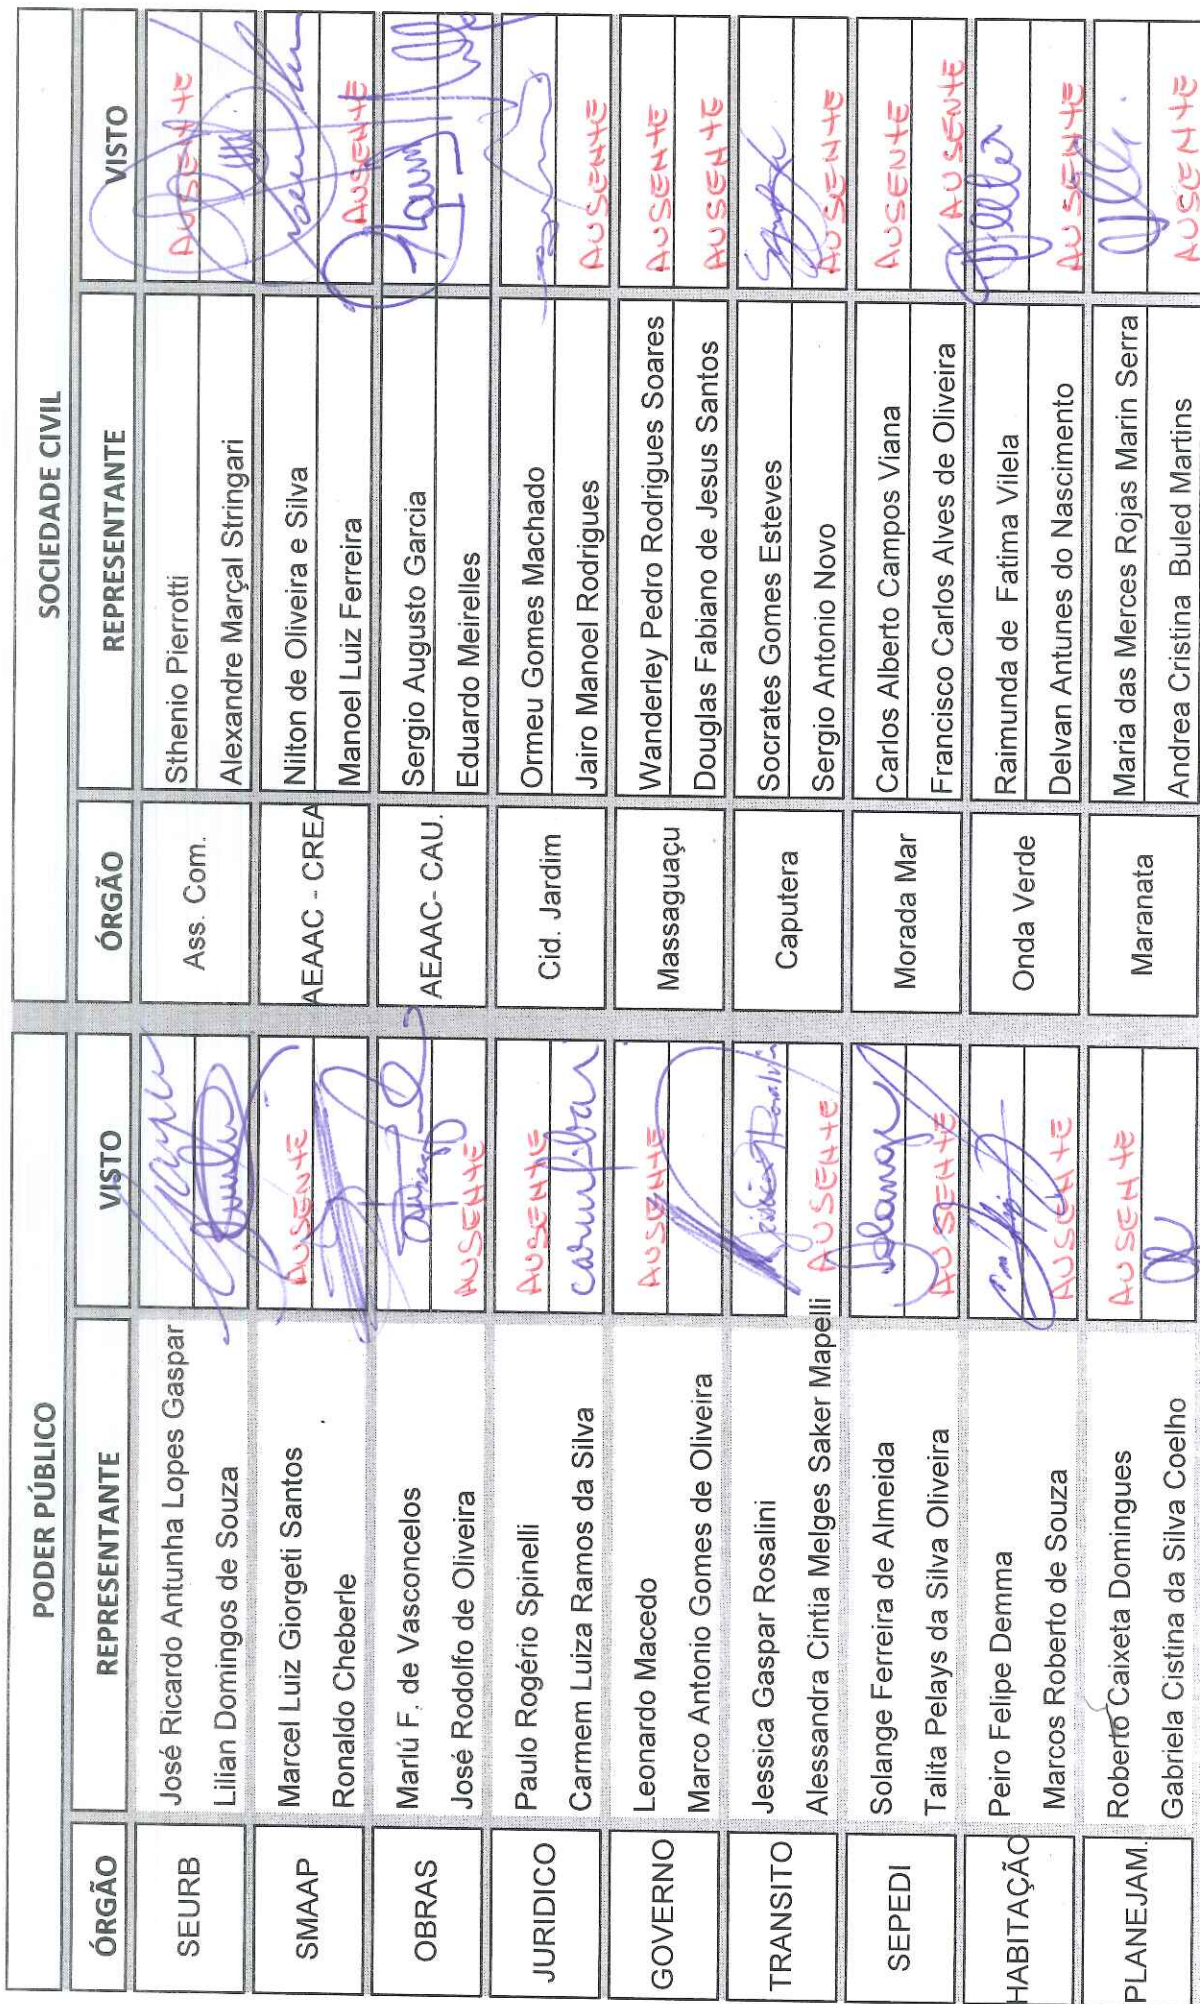 PODER PÚBLICO
ÓRGÃO REPRESENTANTE VISTO
SEURB
José Ricardo Antunha Lopes Gaspar
Lilian Domingos de Souza
SMAAP
Marcel Luiz Giorgeti Santos AUSENTE
Ronaldo Cheberle
OBRAS
Marlú F. de Vasconcelos
José Rodolfo de Oliveira AUSENTE
JURIDICO
Paulo Rogério Spinelli AUSENTE
Carmem Luiza Ramos da Silva
GOVERNO
Leonardo Macedo AUSENTE
Marco Antonio Gomes de Oliveira
TRANSITO
Jessica Gaspar Rosalini
Alessandra Cintia Melges Saker Mapelli AUSENTE
SEPEDI
Solange Ferreira de Almeida Solange
Talita Pelays da Silva Oliveira AUSENTE
HABITAÇÃO
Peiro Felipe Demma
Marcos Roberto de Souza AUSENTE
PLANEJAM.
Roberto Caixeta Domingues AUSENTE
Gabriela Cistina da Silva Coelho
SOCIEDADE CIVIL
ÓRGÃO REPRESENTANTE VISTO
Ass. Com.
Sthenio Pierrotti AUSENTE
Alexandre Marçal Stringari
AEAAC - CREA
Nilton de Oliveira e Silva
Manoel Luiz Ferreira AUSENTE
AEAAC- CAU.
Sergio Augusto Garcia
Eduardo Meirelles
Cid. Jardim
Ormeu Gomes Machado
Jairo Manoel Rodrigues AUSENTE
Massaguaçu
Wanderley Pedro Rodrigues Soares AUSENTE
Douglas Fabiano de Jesus Santos AUSENTE
Caputera
Socrates Gomes Esteves
Sergio Antonio Novo AUSENTE
Morada Mar
Carlos Alberto Campos Viana AUSENTE
Francisco Carlos Alves de Oliveira AUSENTE
Onda Verde
Raimunda de Fatima Vilela
Delvan Antunes do Nascimento AUSENTE
Maranata
Maria das Merces Rojas Marin Serra
Andrea Cristina Buled Martins AUSENTE